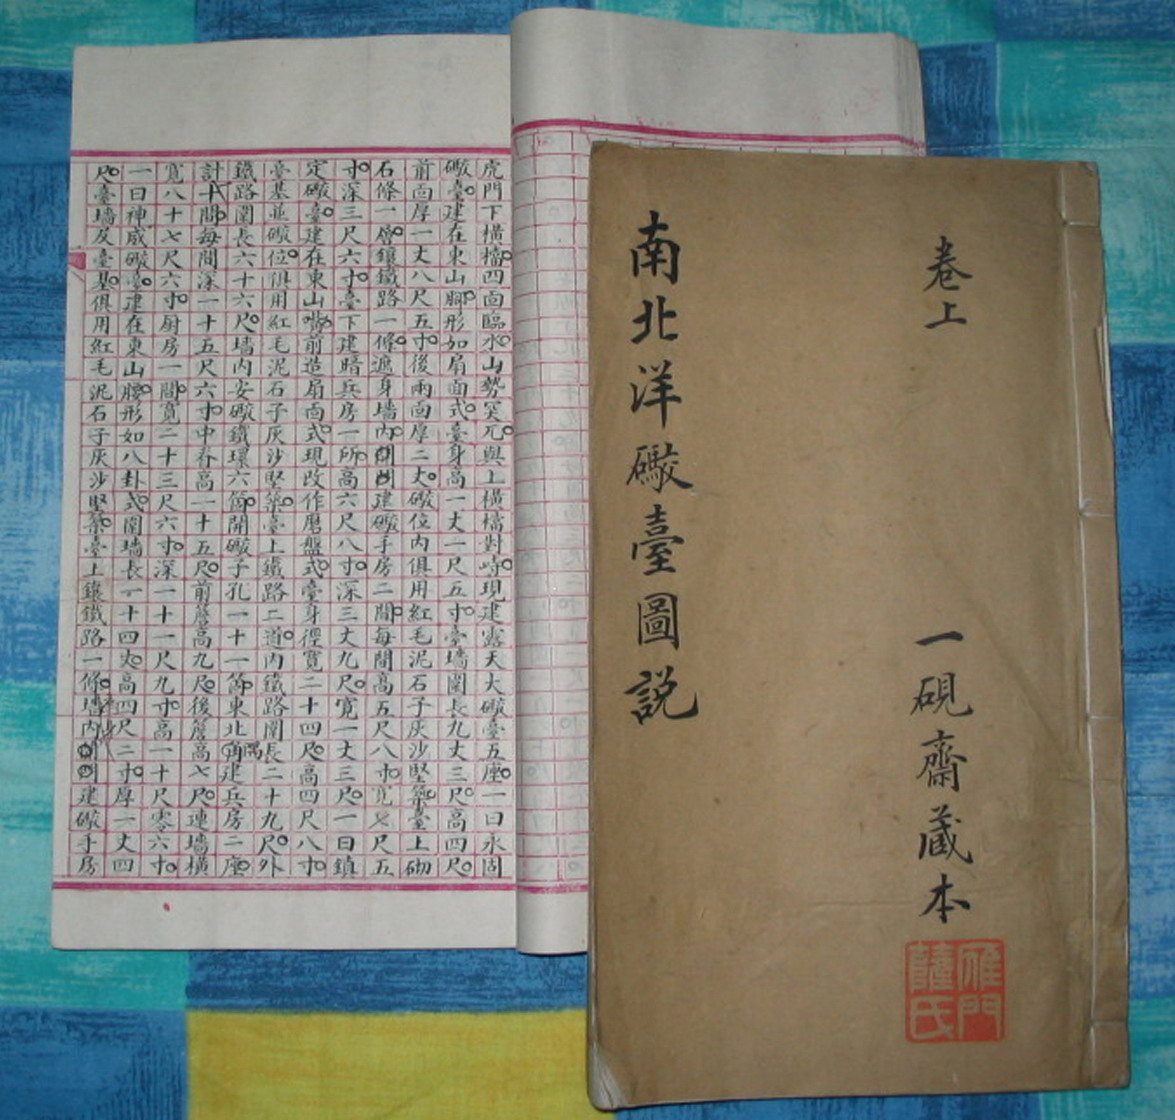 虎門下橫檔。四面臨水。山勢突兀。與上橫檔對峙。現建露天大礮臺五座。一曰永固
礮臺。建在東山腳。形如扇面式。臺身高一丈一尺五寸。臺墻圍長九丈三尺。高四尺。
前面厚一丈八尺五寸。後兩面厚二丈。礮位內俱用紅毛泥石子灰沙堅築。臺上砌
石條一層。鑲鐵路一條。遮身墻內。開凹建礮手房二間。每間高五尺八寸。寬七尺五
寸。深三尺六寸。臺下建暗兵房一所。高六尺八寸。深三丈九尺。寬一丈三尺。一曰鎮
定礮臺。建在東山嘴。前造扇面式。現改作磨盤式。臺身徑寬二十四尺。高四尺八寸。
臺基並礮位。俱用紅毛泥石子灰沙堅築。臺上鐵路二道。內鐵路圍長二十九尺。外
鐵路圍長六十六尺。墻內安礮鐵環六箇。開礮子孔一十一箇。東北隅建兵房二座。
計十間。每間深一十五尺六寸。中脊高一十五尺。前簷高九尺。後簷高七尺。連墻橫
寬八十七尺六寸。厨房一間。寬二十三尺六寸。深一十一尺九寸。高一十尺零六寸。
一曰神威礮臺。建在東山腰。形如八卦式。圍墻長一十四丈。高四尺二寸。厚一丈四
尺。臺墻及臺基。俱用紅毛泥石子灰沙堅築。臺上鑲鐵路一條。墻內開凹建礮手房
卷上
一硯齋藏本
雁門薩氏
南北洋礮臺圖說